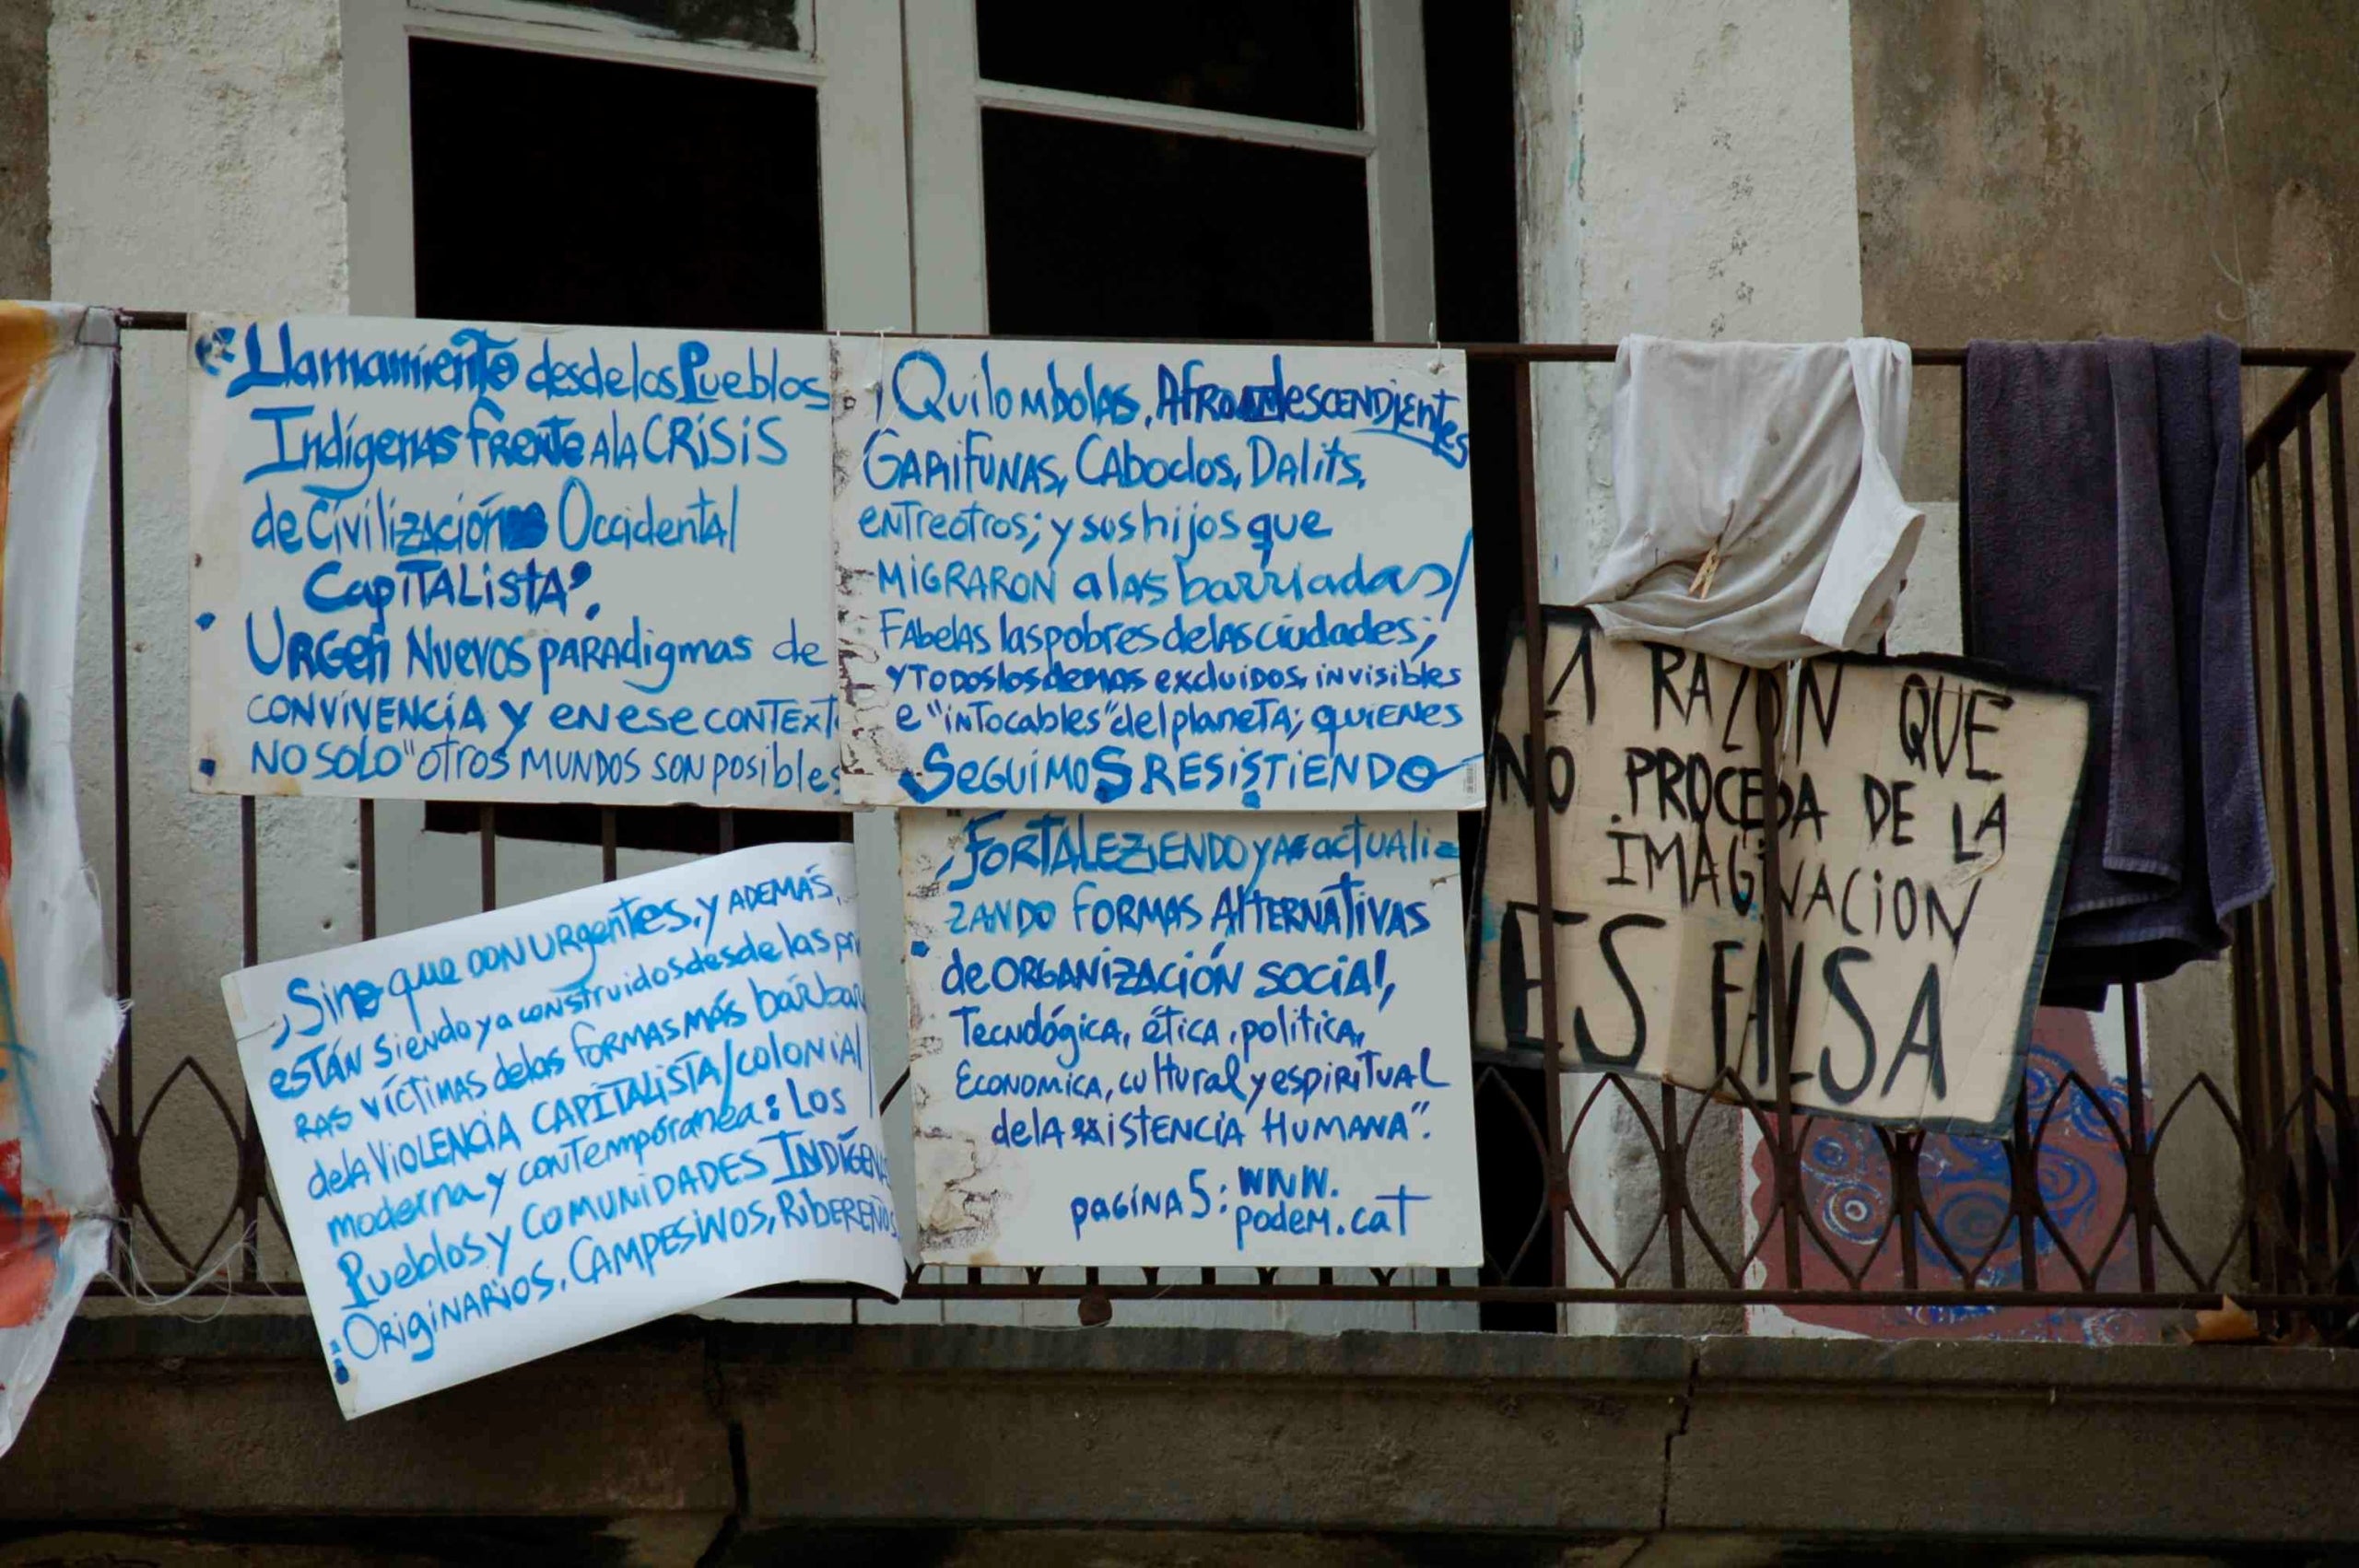 "Llamamiento desde los Pueblos
Indígenas frente A lA CRiSiS
de Civilización Occidental
CapiTALista".
URGen Nuevos pARAdigmas de
CONVIVENCIA y en ese CONTEXT
NO SOLO "otros MUNDOS SON posibles
, Sino que son URgentes, y ADEMÁS,
están siendo ya construidos desde las pri
RAS víctimas de las formas más bárbar
de lA ViOLENCiA CAPITALISTA/colonial/
moderna y contemporánea: Los
Pueblos y COMUNIDADES INDÍGENAS
ORiginARiOS, CAMPESINOS, RibEREÑOS
, Quilombolas, Afrodescendientes
GARIFUNAS, CAboclos, DALits,
entre otros; y sus hijos que
MiGRARON a las barriadas/
FAbelas las pobres de las ciudades;
y Todos los demas excluidos, invisibles
e "inTocables" del planeTA; quienes
SeguimoS RESiSTiENDO
, FORTALEZiENDO y actuAli
ZANDO FORMAS AlTERNATiVAS
de ORGANiZACiÓN SOCiAl,
Tecnológica, ética, politica,
Economica, cultural y espiRiTUAL
de lA existencia HUMANA".
pagina 5: WWW.
podem.cat
LA RAZON QUE
NO PROCEDA DE LA
IMAGINACION
ES FALSA